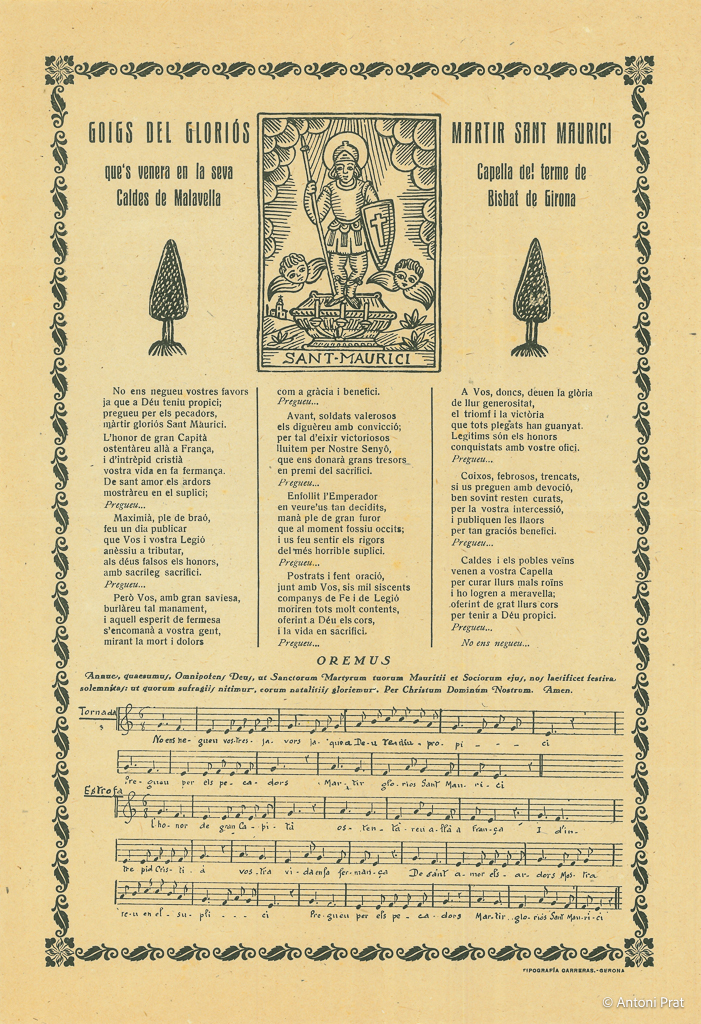 GOIGS DEL GLORIÓS
MARTIR SANT MAURICI
que's venera en la seva
Capella del terme de
Caldes de Malavella
Bisbat de Girona
SANT-MAURICI
No ens negueu vostres favors
ja que a Déu teniu propici;
pregueu per els pecadors,
màrtir gloriós Sant Màurici.
L'honor de gran Capità
ostentàreu allà a França,
i d'intrèpid cristià
vostra vida en fa fermança.
De sant amor els ardors
mostràreu en el suplici;
Pregueu...
Maximià, ple de braó,
feu un dia publicar
que Vos i vostra Legió
anèssiu a tributar,
als déus falsos els honors,
amb sacrileg sacrifici.
Pregueu...
Però Vos, amb gran saviesa,
burlàreu tal manament,
i aquell esperit de fermesa
s'encomanà a vostra gent,
mirant la mort i dolors
com a gràcia i benefici.
Pregueu...
Avant, soldats valerosos
els diguèreu amb convicció;
per tal d'eixir victoriosos
lluitem per Nostre Senyó,
que ens donarà grans tresors
en premi del sacrifici.
Pregueu...
Enfollit l'Emperador
en veure'us tan decidits,
manà ple de gran furor
que al moment fossiu occits;
i us feu sentir els rigors
del més horrible suplici.
Pregueu...
Postrats i fent oració,
junt amb Vos, sis mil siscents
companys de Fe i de Legió
moriren tots molt contents,
oferint a Déu els cors,
i la vida en sacrifici.
Pregueu...
A Vos, doncs, deuen la glòria
de llur generositat,
el triomf i la victòria
que tots plegats han guanyat.
Legitims són els honors
conquistats amb vostre ofici.
Pregueu...
Coixos, febrosos, trencats,
si us preguen amb devoció,
ben sovint resten curats,
per la vostra intercessió,
i publiquen les llaors
per tan graciós benefici.
Pregueu...
Caldes i els pobles veïns
venen a vostra Capella
per curar llurs mals roïns
i ho logren a meravella;
oferint de grat llurs cors
per tenir a Déu propici.
Pregueu...
No ens negueu...
OREMUS
Annue, quaesumus, Omnipotens Deus, ut Sanctorum Martyrum tuorum Mauritii et Sociorum ejus, nos laetificet festiva
solemnitas: ut quorum sufragiis nitimur, eorum natalitiis gloriemur. Per Christum Dominúm Nostrum. Amen.
Tornada
No ens ne-gueu vos-tres fa-vors ja que a De-u teniu pro-pi---ci
Pre-gueu per els pe-ca-dors Mar-tir glo-rios Sant Mau-ri-ci
Estrofa
L'ho-nor de gran Ca-pi-tà os-ten-tà-reu a-llà a França I d'in-
tre pid Cris-ti-à vos-tra vi-da en fa fer-man-ça De sant a-mor els ar-dors Mos-tra
re-u en el su-pli---ci Pre-gueu per els pe-ca-dors Mar-tir glo-riós Sant Mau-ri-ci
TIPOGRAFÍA CARRERAS.-GERONA
© Antoni Prat